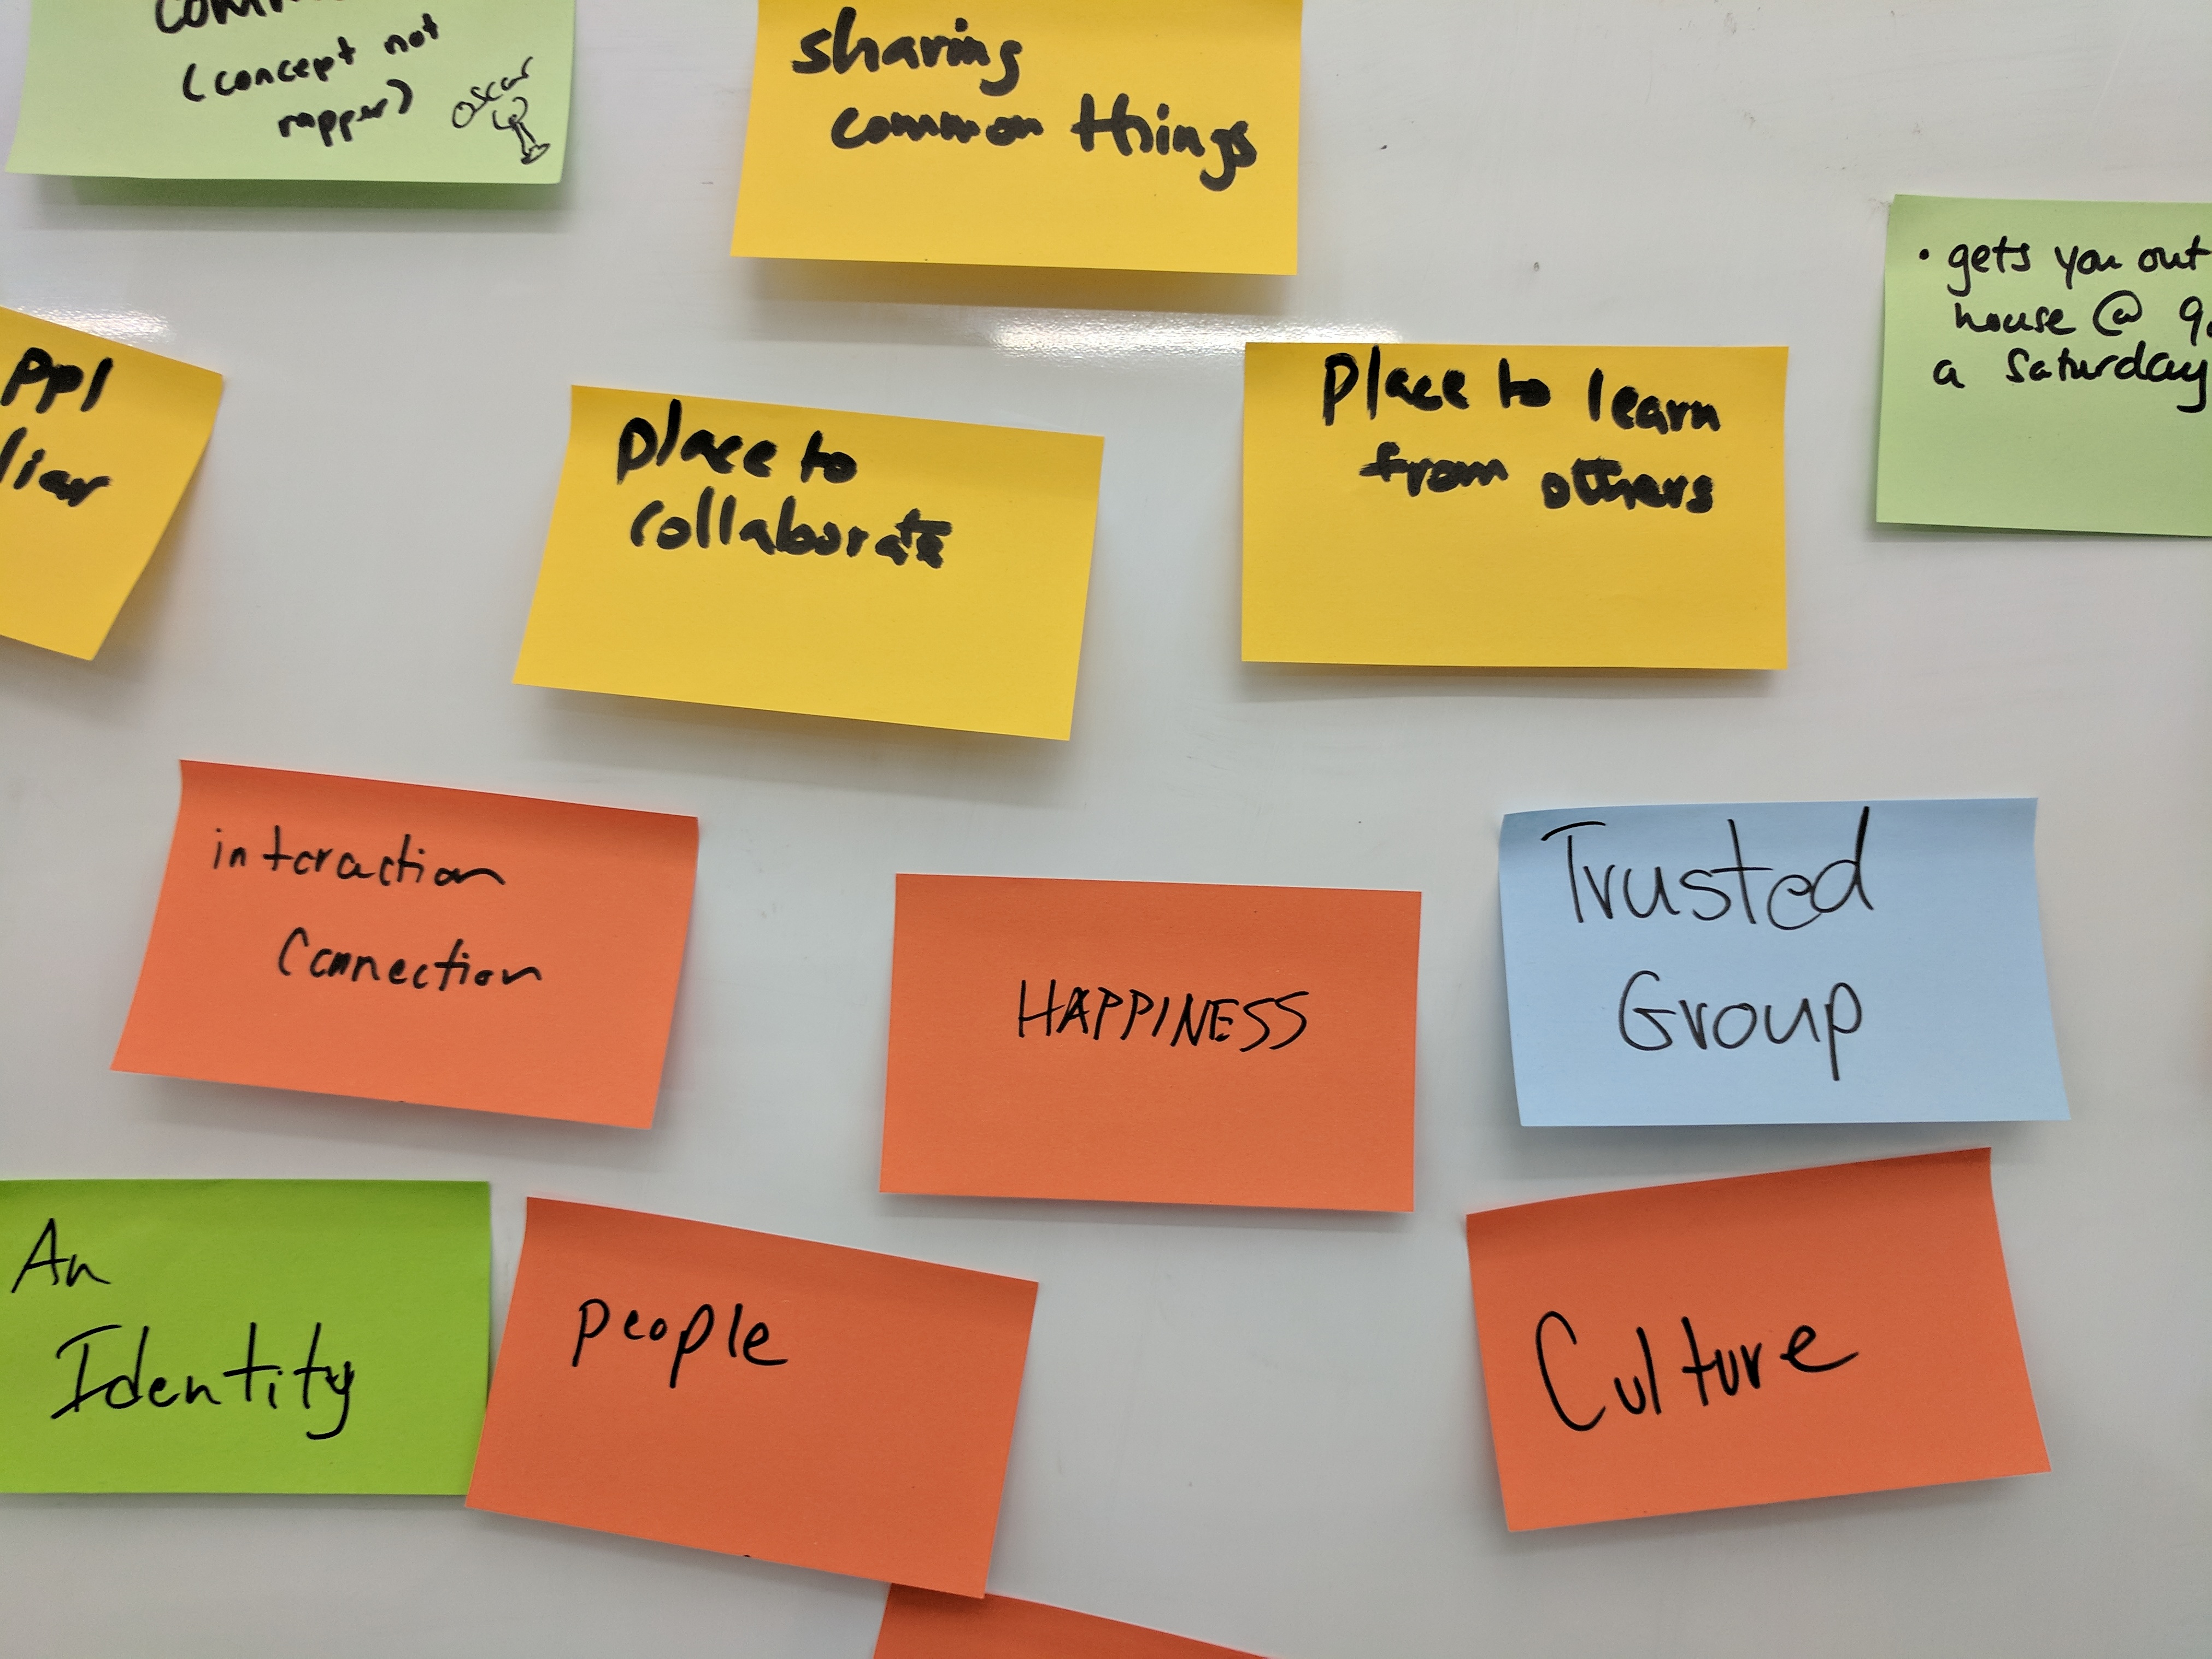 (concept not
rapper)
Oscar
sharing
common things
• gets you out
house @
a Saturday
ppl
place to
collaborate
Place to learn
from others
interaction
Connection
HAPPINESS
Trusted
Group
An
Identity
people
Culture